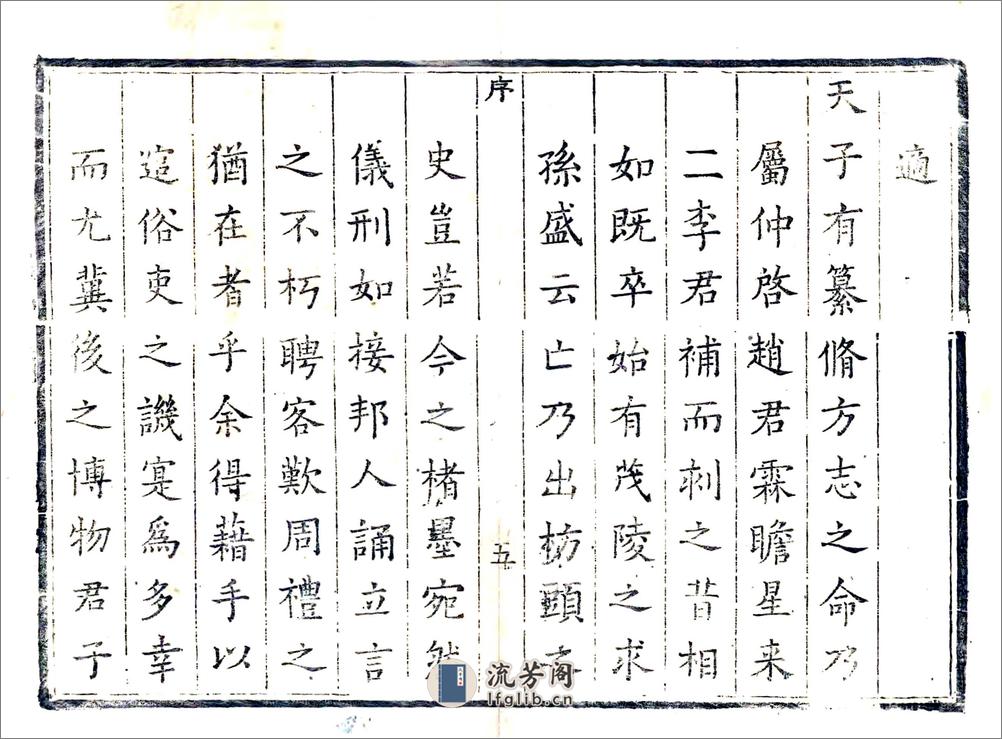 適
天子有纂脩方志之命乃
屬仲啓趙君霖瞻星来
二李君補而刺之昔相
如既卒始有茂陵之求
孫盛云亡乃出枋頭之
序
五
史豈若今之楮墨宛然
儀刑如接邦人誦立言
之不朽聘客歎周禮之
猶在者乎余得藉手以
逭俗吏之譏寔為多幸
而尤冀後之博物君子
流芳阁
lfglib.cn